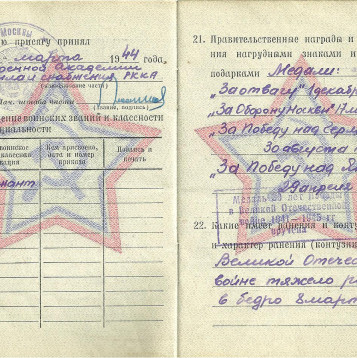 Москвы
ю присягу принял
марта 1944 года,
Академии
снабжения РККА
(наименование части)
Нач. штаба части
(звание, подпись)
ение воинских званий и классности
циальности
Кем присвоено, дата и номер приказа
Подпись и печать
21. Правительственные награда и
ния нагрудными знаками и
подарками Медали:
"За отвагу" 1 декабр
"За Оборону Москвы"
"За Победу над Гер
30 августа
"За Победу над Яп
29 апреля
Медаль 20 лет Победы
в Великой Отечественной
войне 1941–1945 гг
вручена
22. Какие имеет ранения и конту
и характер ранения (контузи
Великой Отече
войне тяжело р
в бедро 8 март